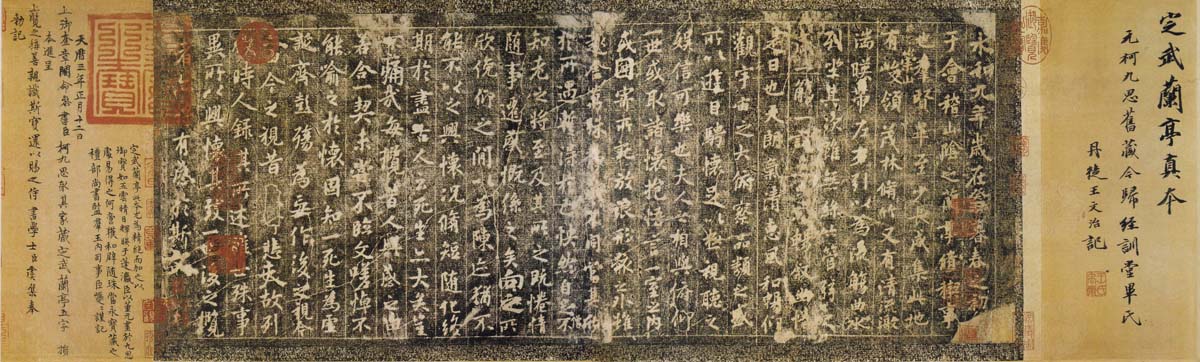 定武蘭亭真本
元柯九思舊藏今歸經訓堂畢氏
丹徒王文治記
永和九年歲在癸丑暮春之初
于會稽山陰之蘭亭脩稧事
也羣賢畢至少長咸集此地
有峻領茂林脩竹又有清流激
湍暎帶左右引以為流觴曲水
列坐其次
一觴一詠亦足以暢叙幽情
是日也天朗氣清惠風和暢仰
觀宇宙之大俯察品類之盛
所以遊目騁懷足以極視聽之
娛信可樂也夫人之相與俯仰
一世或取諸懷抱悟言一室之內
或因寄所託放浪形骸之外雖
趣舍萬殊靜躁不同當其欣
於所遇暫得於己怏然自足不
知老之將至及其所之既惓情
隨事遷感慨係之矣向之所
欣俛仰之閒以為陳迹猶不
能不以之興懷況脩短隨化終
期於盡古人云死生亦大矣豈
不痛哉每攬昔人興感之由
若合一契未嘗不臨文嗟悼不
能喻之於懷固知一死生為虛
誕齊彭殤為妄作後之視今
亦由今之視昔悲夫故列
叙時人錄其所述雖世殊事
異所以興懷其致一也後之攬
者亦將有感於斯文
定武蘭亭此本尤為精絕而加之以
御寶如五雲晴日輝映于蓬瀛臣以董元畫於九思
處易得之何啻獲和璧隨珠當永寶藏之
禮部尚書監羣玉內司事臣巙巙謹記
天曆三年正月十二日
上御奎章閣命參書臣柯九思取其家藏定武蘭亭五字損
本進呈
上覽之稱善親識斯寶還以賜之侍書學士臣虞集奉
勑記